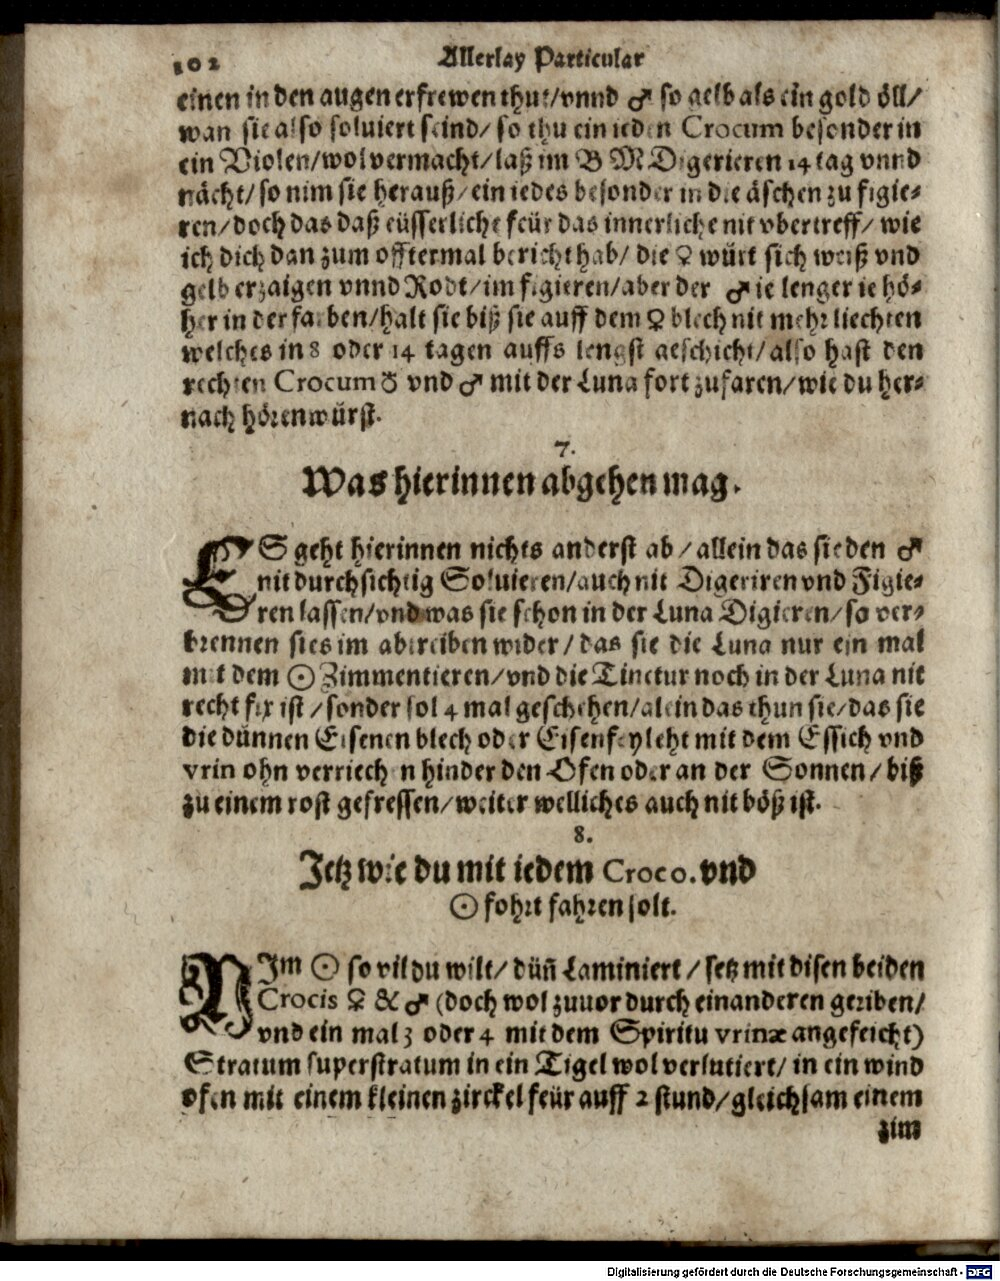 102 Allerlay Particular
einen in den augen erfrewen thut/vnnd ♂ so gelb als ein gold öll/
wan sie also soluiert seind/ so thu ein ieden Crocum besonder in
ein Violen/wol vermacht/laß im B M Digerieren 14 tag vnnd
nächt/so nim sie herauß/ein iedes besonder in die äschen zu figie⸗
ren/doch das daß eüsserliche feür das innerliche nit vbertreff/ wie
ich dich dan zum offtermal bericht hab/ die ♀ würt sich weiß vnd
gelb erzaigen vnnd Rodt/im figieren/aber der ♂ ie lenger ie hö⸗
her in der farben/halt sie biß sie auff dem ♀ blech nit mehr liechten
welches in 8 oder 14 tagen auffs lengst geschicht/also hast den
rechten Crocum ♀ vnd ♂ mit der Luna fort zufaren/wie du her⸗
nach hören würst.
7.
Was hierinnen abgehen mag.
ES geht hierinnen nichts anderst ab/allein das sie den ♂
nit durchsichtig Soluieren/auch nit Digeriren vnd Figie⸗
ren lassen/vnd was sie schon in der Luna Digieren/so ver⸗
brennen sies im abtreiben wider/das sie die Luna nur ein mal
mit dem ☉ Zimmentieren/vnd die Tinctur noch in der Luna nit
recht fix ist/sonder sol 4 mal geschehen/alein das thun sie/das sie
die dünnen Eisenen blech oder Eisenfeyleht mit dem Essich vnd
vrin ohn verriechen hinder den Ofen oder an der Sonnen/biß
zu einem rost gefressen/weiter welliches auch nit böß ist.
8.
Jetz wie du mit iedem Croco. vnd
☉ fohrt fahren solt.
NIm ☉ so vil du wilt/dün̄ Laminiert/setz mit disen beiden
Crocis ♀ & ♂ (doch wol zuuor durch einanderen geriben/
vnd ein mal 3 oder 4 mit dem Spiritu vrinæ angefeicht)
Stratum superstratum in ein Tigel wol verlutiert/ in ein wind
ofen mit einem kleinen zirckel feür auff 2 stund/gleichsam einem
zim
Digitalisierung gefördert durch die Deutsche Forschungsgemeinschaft - DFG